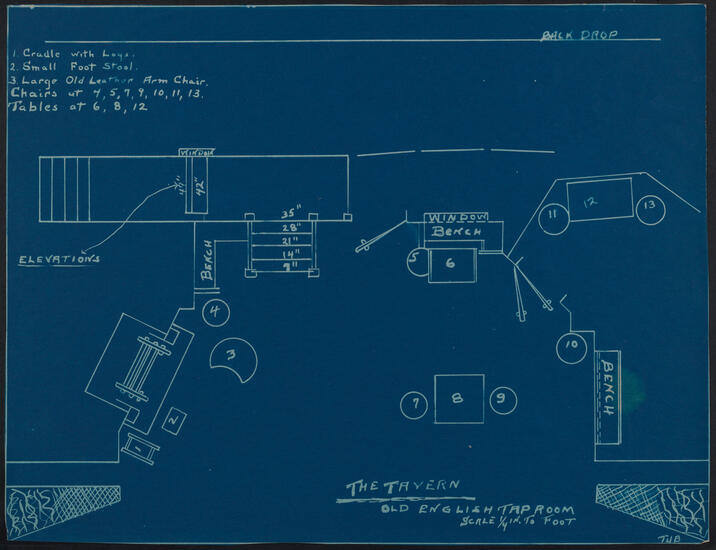 BACK DROP
1. Cradle with Logs.
2. Small Foot Stool.
3. Large Old Leather Arm Chair.
Chairs at 4, 5, 7, 9, 10, 11, 13.
Tables at 6, 8, 12
WINDOW
49"
42"
35"
28"
21"
14"
7"
ELEVATIONS
BENCH
WINDOW
BENCH
5
6
11
12
13
4
3
10
BENCH
7
8
9
2
1
THE TAVERN
OLD ENGLISH TAP ROOM
SCALE 1/4 IN. TO FOOT